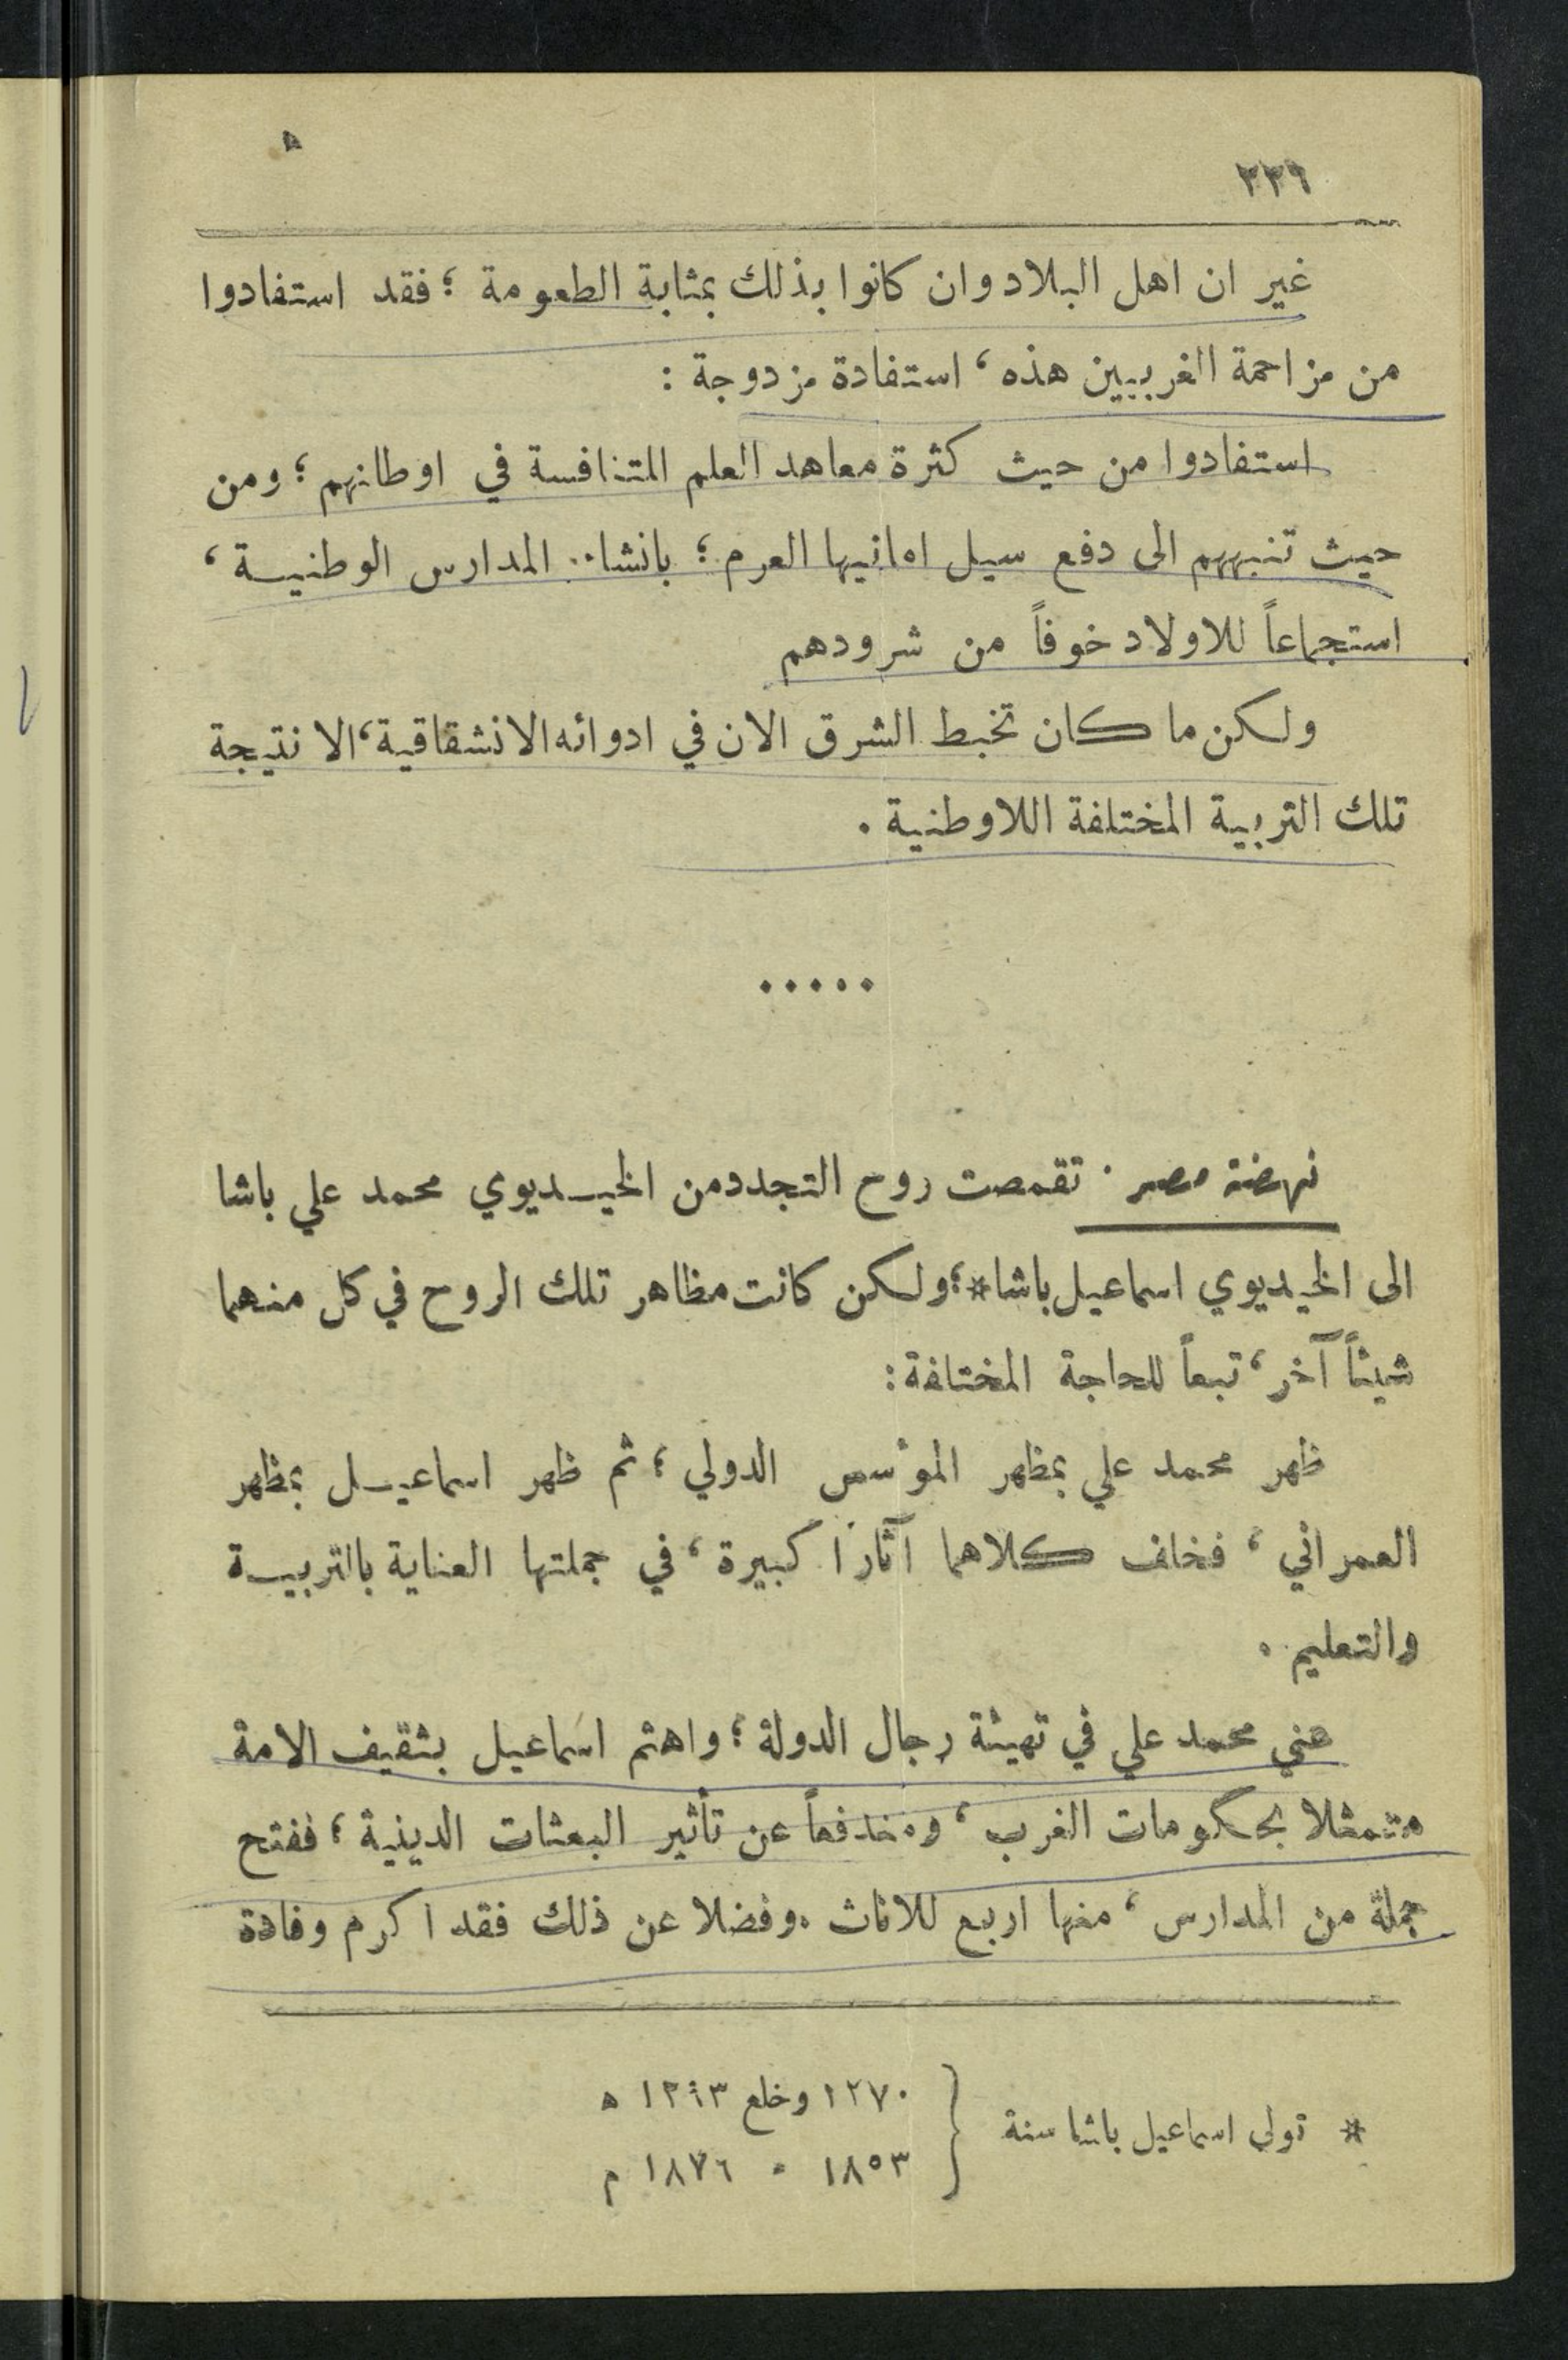 ٣٣٦
غير ان اهل البلاد وان كانوا بذلك بمثابة الطعومة ؛ فقد استفادوا
من مزاحمة الغربيين هذه ، استفادة مزدوجة :
استفادوا من حيث كثرة معاهد العلم المتنافسة في اوطانهم ؛ ومن
حيث تنبههم الى دفع سيل امانيها العرم ؛ بانشاء المدارس الوطنية ،
استجماعاً للاولاد خوفاً من شرودهم
ولكن ما كان تخبط الشرق الان في ادوائه الانشقاقية ، الا نتيجة
تلك التربية المختلفة اللاوطنية .
. . . . .
نهضة مصر . تقمصت روح التجدد من الخيديوي محمد علي باشا
الى الخيديوي اسماعيل باشا* ؛ ولكن كانت مظاهر تلك الروح في كل منهما
شيئاً آخر ، تبعاً للحاجة المختلفة :
ظهر محمد علي بمظهر المؤسس الدولي ؛ ثم ظهر اسماعيل بمظهر
العمراني ، فخلف كلاهما آثارا كبيرة ، في جملتها العناية بالتربية
والتعليم .
عني محمد علي في تهيئة رجال الدولة ؛ واهتم اسماعيل بثقيف الامة
متمثلا بحكومات الغرب ، ومندفعاً عن تأثير البعثات الدينية ؛ ففتح
جملة من المدارس ، منها اربع للاناث . وفضلا عن ذلك فقد اكرم وفادة
* تولى اسماعيل باشا سنة { ١٢٧٠ وخلع ١٢٩٣ ه
١٨٥٣ = ١٨٧٦ م